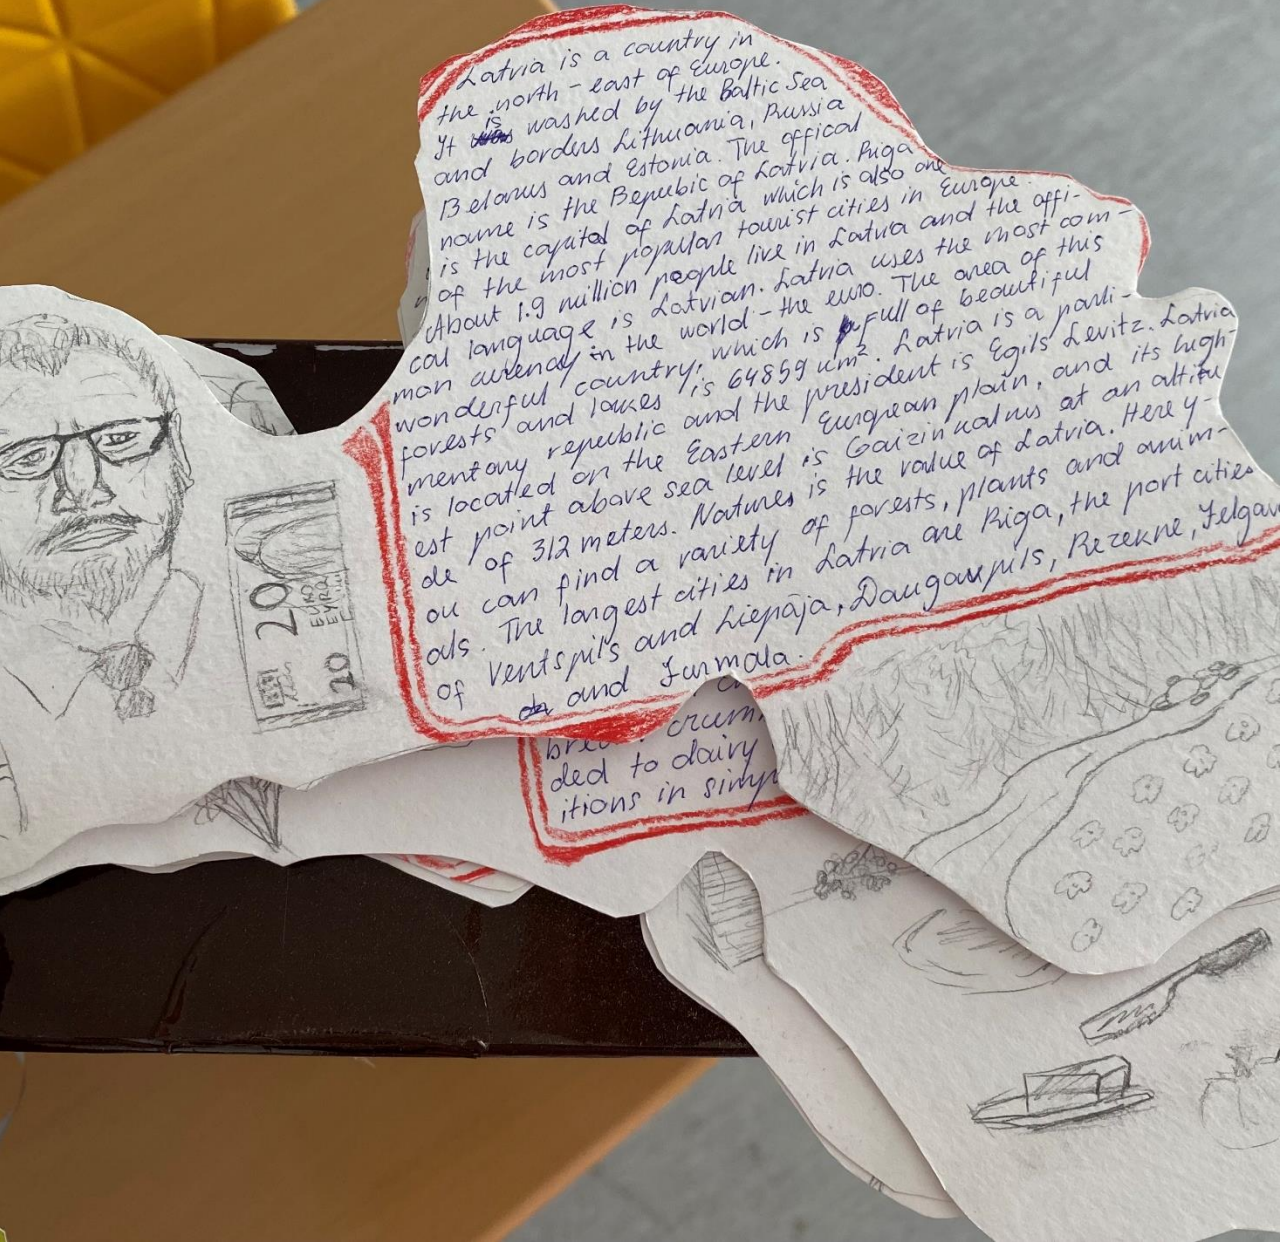 Latvia is a country in
the north-east of Europe.
It is washed by the Baltic Sea
and borders Lithuania, Russia
Belarus and Estonia. The offical
name is the Bepublic of Latvia. Riga
is the capital of Latvia which is also one
of the most popular tourist cities in Europe.
About 1.9 million people live in Latvia and the offi-
cal language is Latvian. Latvia uses the most com-
mon curency in the world - the euro. The area of this
wonderful country, which is full of beautiful
forests and lakes is 64859 km². Latvia is a parli-
mentary republic and the president is Egils Levitz. Latvia
is located on the Eastern European plain, and its high-
est point above sea level is Gaizinkalns at an altitu
de of 312 meters. Natures is the value of Latvia. Here y-
ou can find a variety of forests, plants and anim-
als. The largest cities in Latvia are Riga, the port cities
of Ventspils and Liepāja, Daugavpils, Rezekne, Jelgav
and Jurmala.
crum
ded to dairy
itions in simp
20
EURO
EYPΩ
20